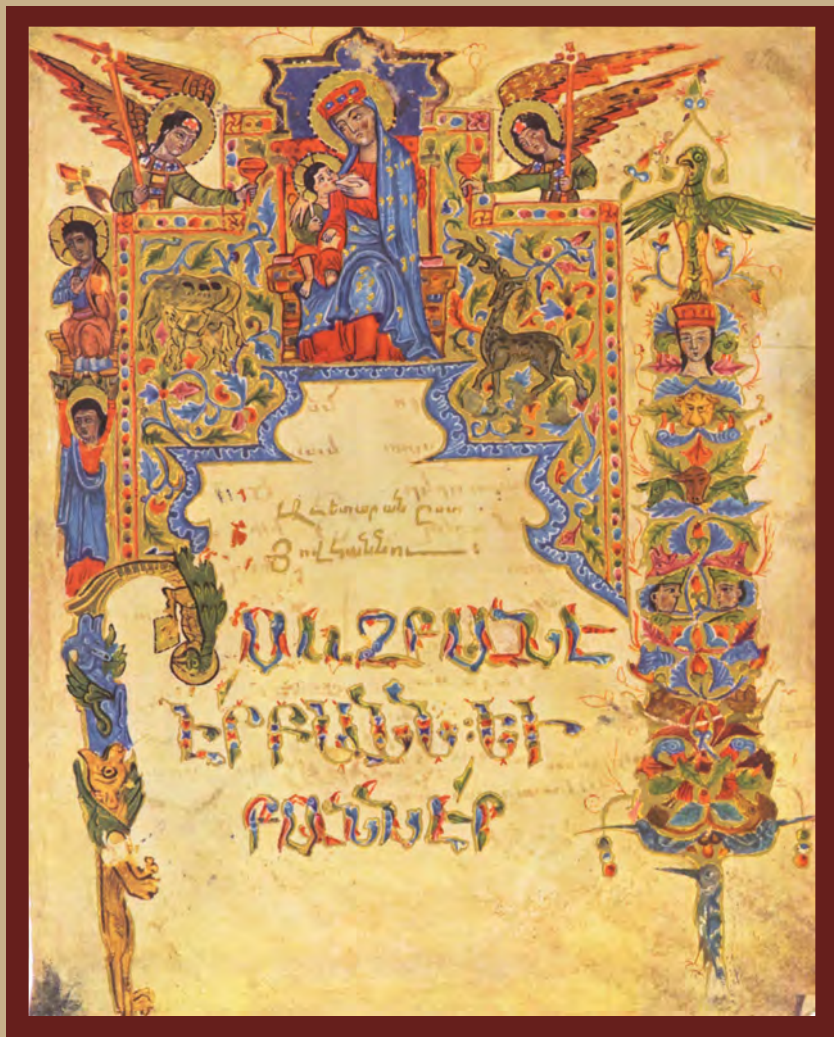 Աւետարան ըստ
Յովհաննու :
ԻՍԿԶԲԱՆԷ
ԷՐԲԱՆՆ:ԵՒ
ԲԱՆՆԷՐ